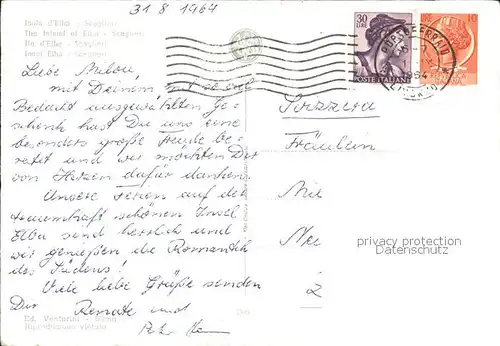 31 8 1964
Isola d'Elba - Scaglieri
The Island of Elba - Scaglieri
Ile d'Elbe - Scaglieri
Insel Elba - Scaglieri
30 LIRE
POSTE ITALIANE
10
PORTOFERRAIO
1964
Liebe
mit Deinem mit so viel
Bedacht ausgewählten Ge-
schenk hast Du uns eine
besonders große Freude be-
reitet und wir möchten Dir
von Herzen dafür danken.
Unsere Ferien auf der
traumhaft schönen Insel
Elba sind herrlich und
wir genießen die Romantik
des Südens!
Viele liebe Grüße senden
Dir Renate und
Svizzera
Fräulein
privacy protection
Datenschutz
Ed. Venturini - Siena
Riproduzione vietata